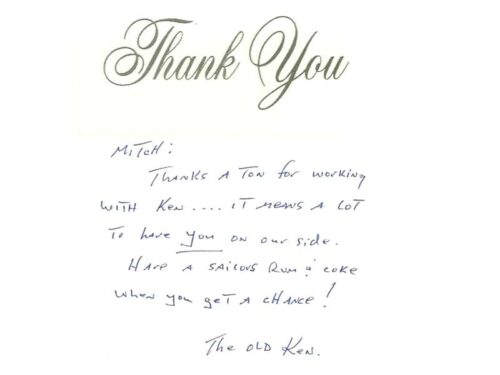 Thank You
Mitch:
Thanks a ton for working
with Ken.... it means a lot
to have you on our side.
Have a sailors Rum & coke
when you get a chance!
The old Ken.